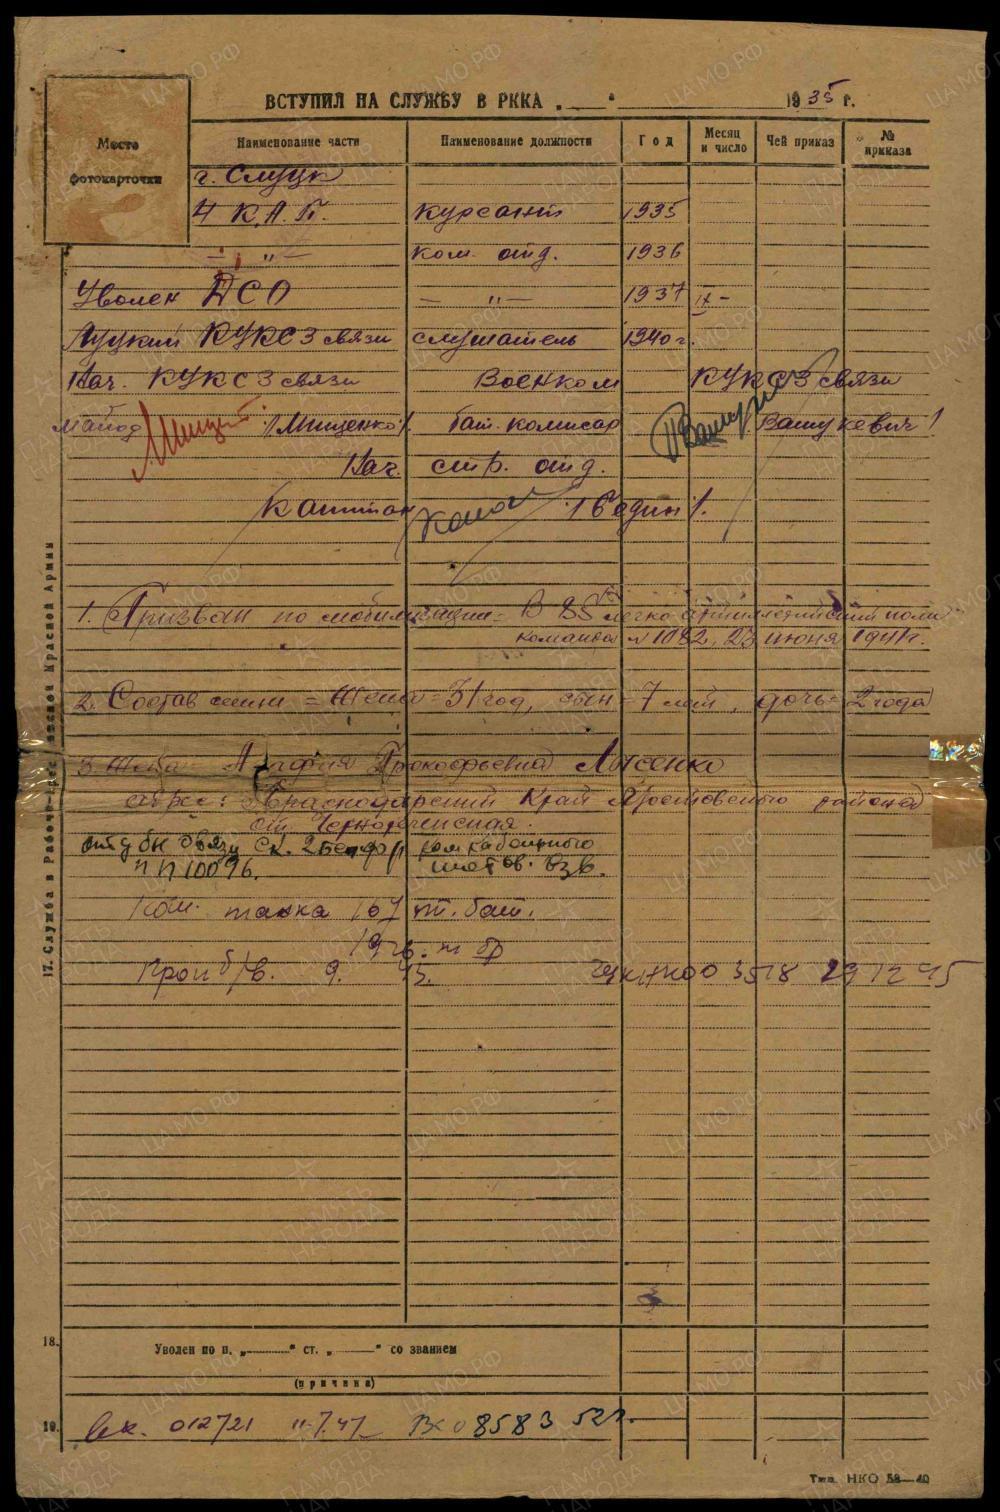 ВСТУПИЛ НА СЛУЖБУ В РККА „ “ 1935 г.
Место фотокарточки
Наименование части Наименование должности Год Месяц и число Чей приказ № приказа
г. Слуцк
4 К.А.П. курсант 1935
— „ — ком. отд. 1936
Уволен ДСО — „ — 1937 IX -
Луцкий КУКСЗ связи слушатель 1940 г.
Нач. КУКСЗ связи Военком КУКСЗ связи
майор /Мищенко/. бат. комисар Вашукевич/
Нач. стр. отд.
Капитан /Бедин/.
1. Призван по мобилизации = В 85 легко артиллерийский полк
команда № 1082, 23 июня 1941 г.
2. Состав семьи = Жена = 31 год, сын = 7 лет, дочь = 2 года
3. Жена Агафия Прокофьевна Лысенко
адрес: Краснодарский Край района
ст. Чернореченская.
отд бн связи Ск. ком кабельного
ПП 10096. шестов. взв.
Ком. танка 167 т. бат.
тбр
Проп б/в. 9. 43. ГУК НКО 3518 29 12 45
17. Служба в Рабоче-Крестьянской Красной Армии
18. Уволен по п. „ “ ст. „ “ со званием
(причина)
19. Вх. 012721 11.7.47 Вх 08583 52г.
Тип. НКО 58—40
ЦАМО.РФ
ПАМЯТЬ НАРОДА